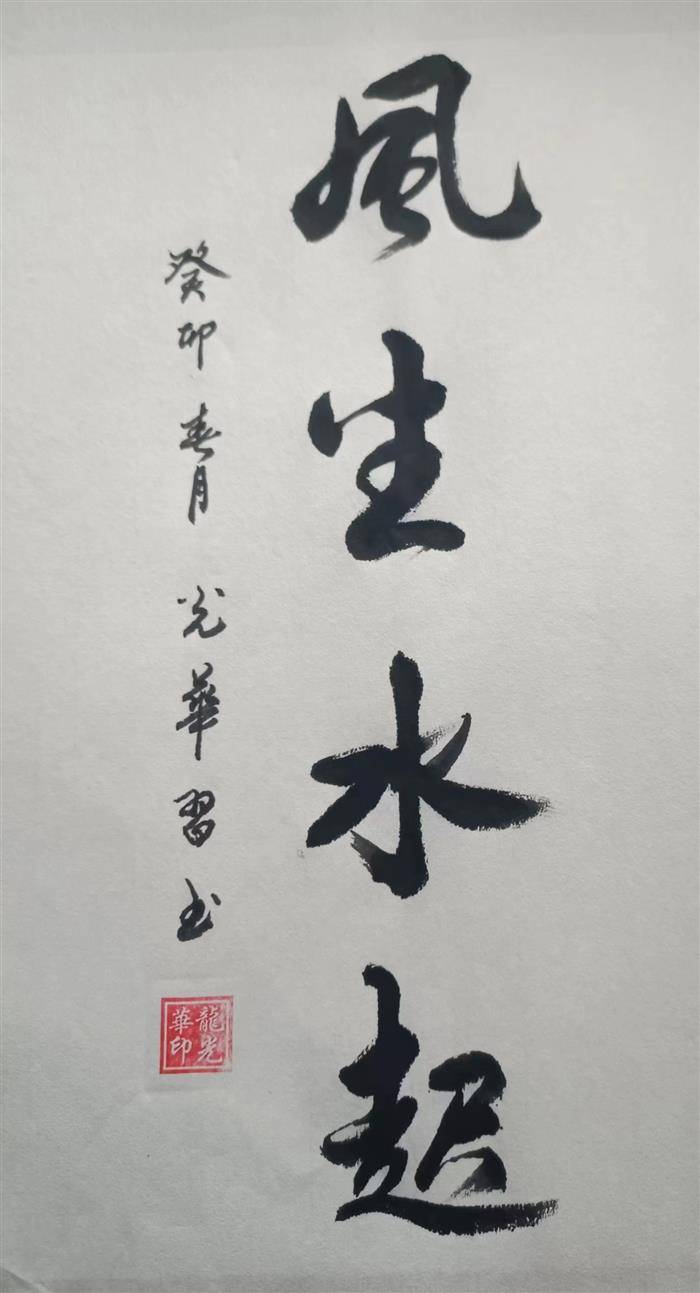 風生水起
癸卯春月光華習书
龍光
華印